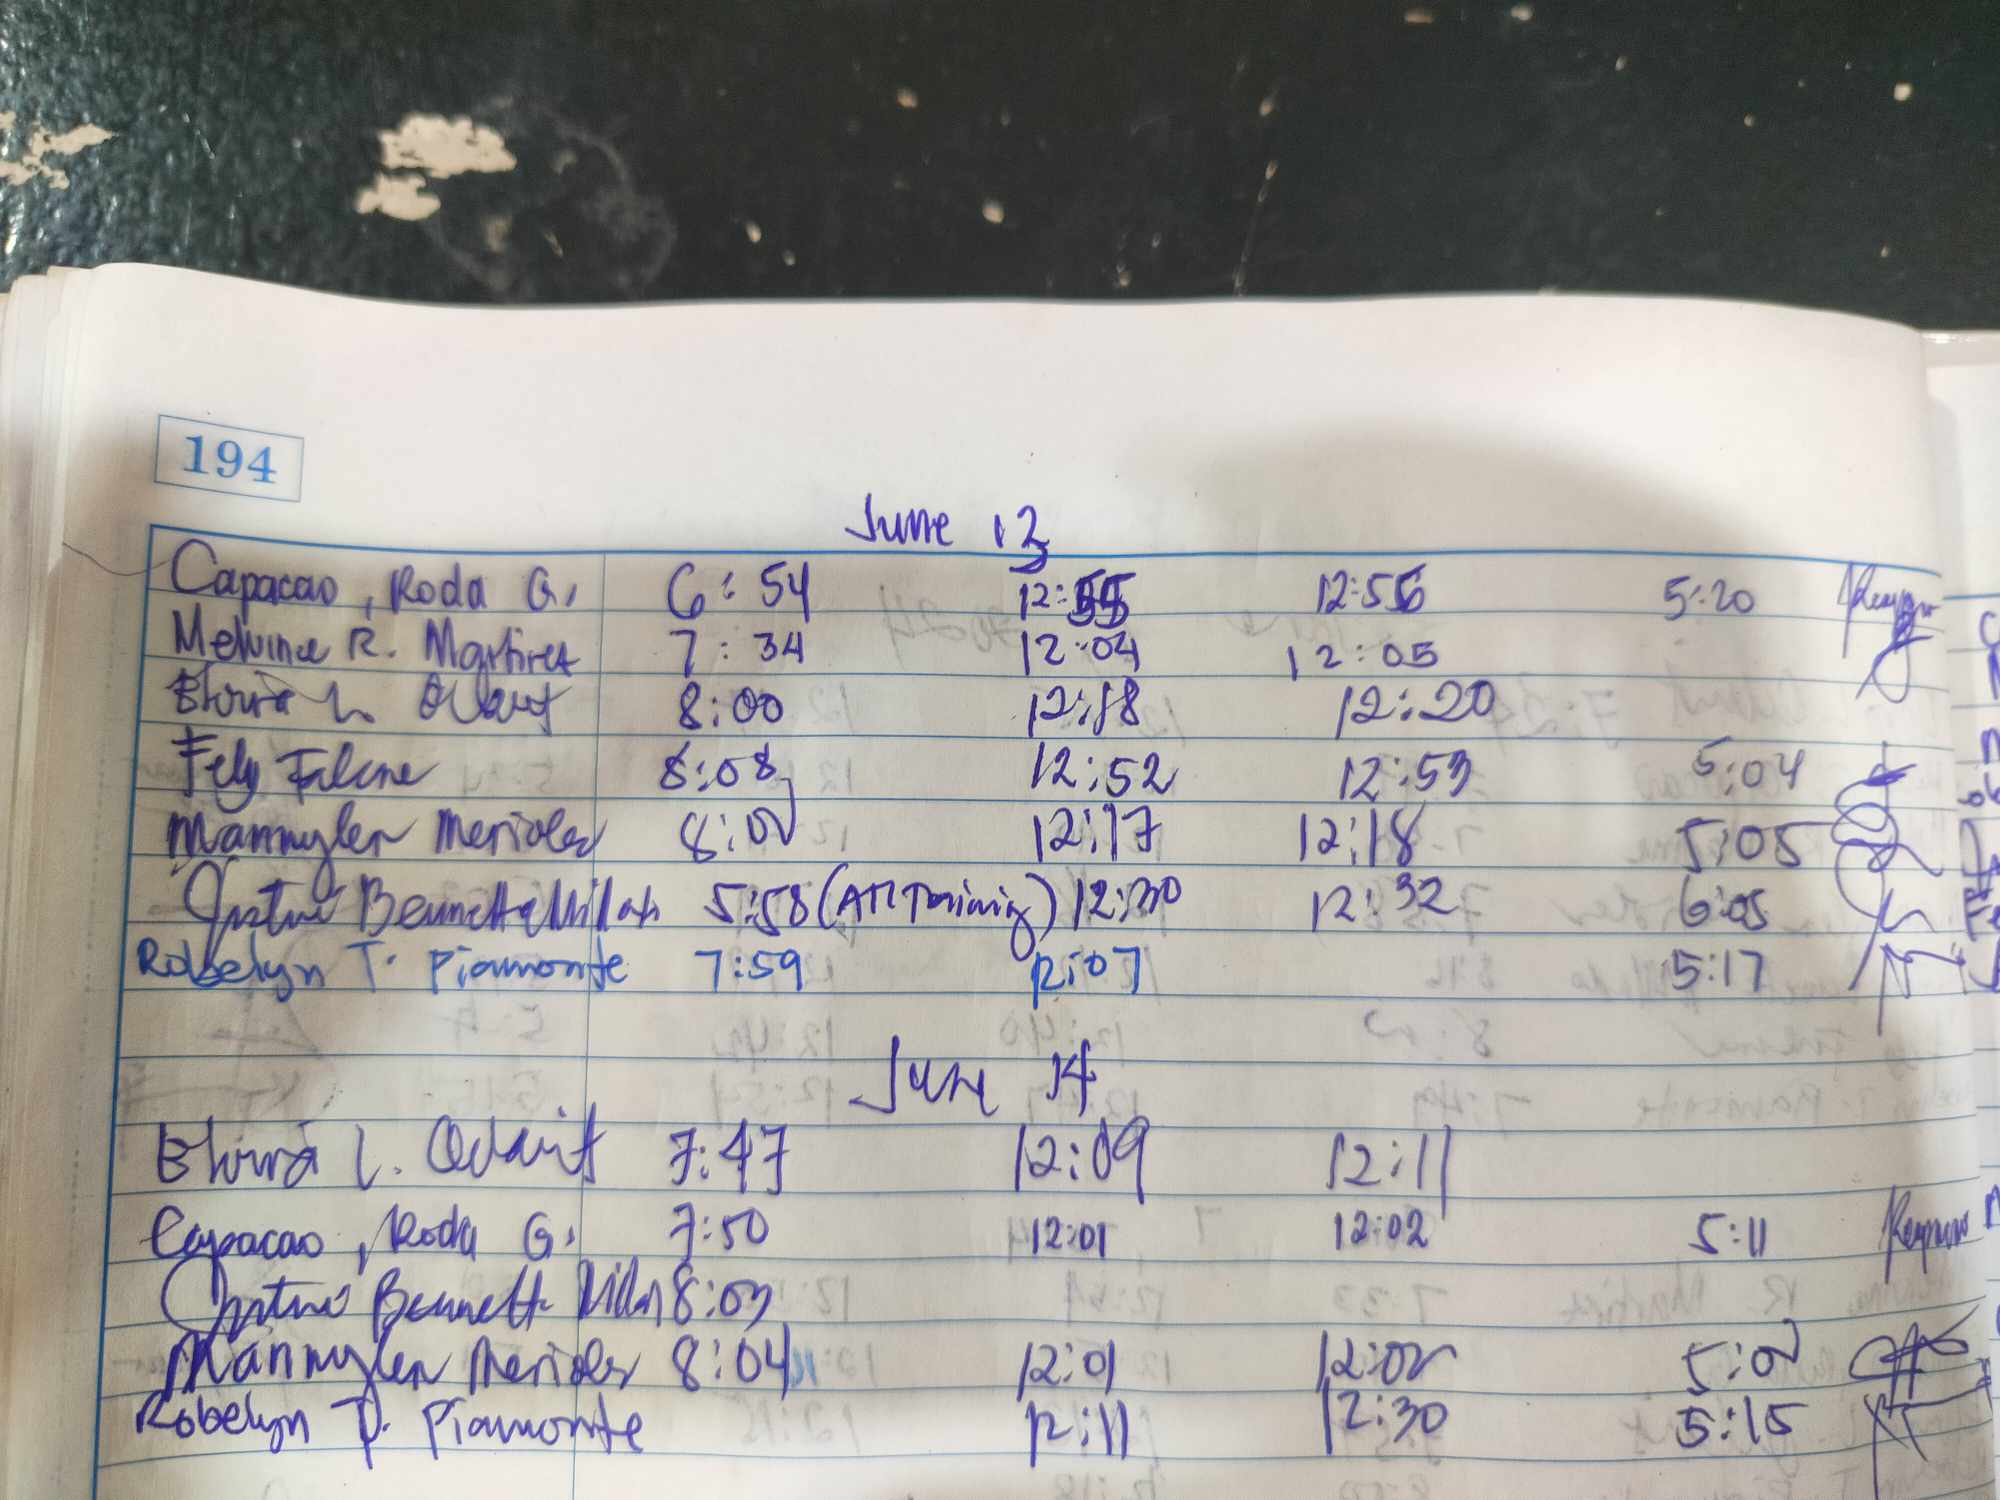 194
June 13
Capacao, Roda G. 6:54 12:55 12:56 5:20
Melvine R. Martirez 7:34 12:04 12:05
L. 8:00 12:18 12:20
Fely Falcne 8:08 12:52 12:53 5:04
Mannylen Merioles 8:02 12:17 12:18 5:05
Bennett Villar 5:58 (ATI Training) 12:30 12:32 6:05
Robelyn T. Piamonte 7:59 12:07 5:17
June 14
L. 7:47 12:09 12:11
Capacao, Roda G. 7:50 12:01 12:02 5:11
Bennett Villar 8:03
Mannylen Merioles 8:04 12:01 12:02 5:02
Robelyn T. Piamonte 12:11 12:30 5:15